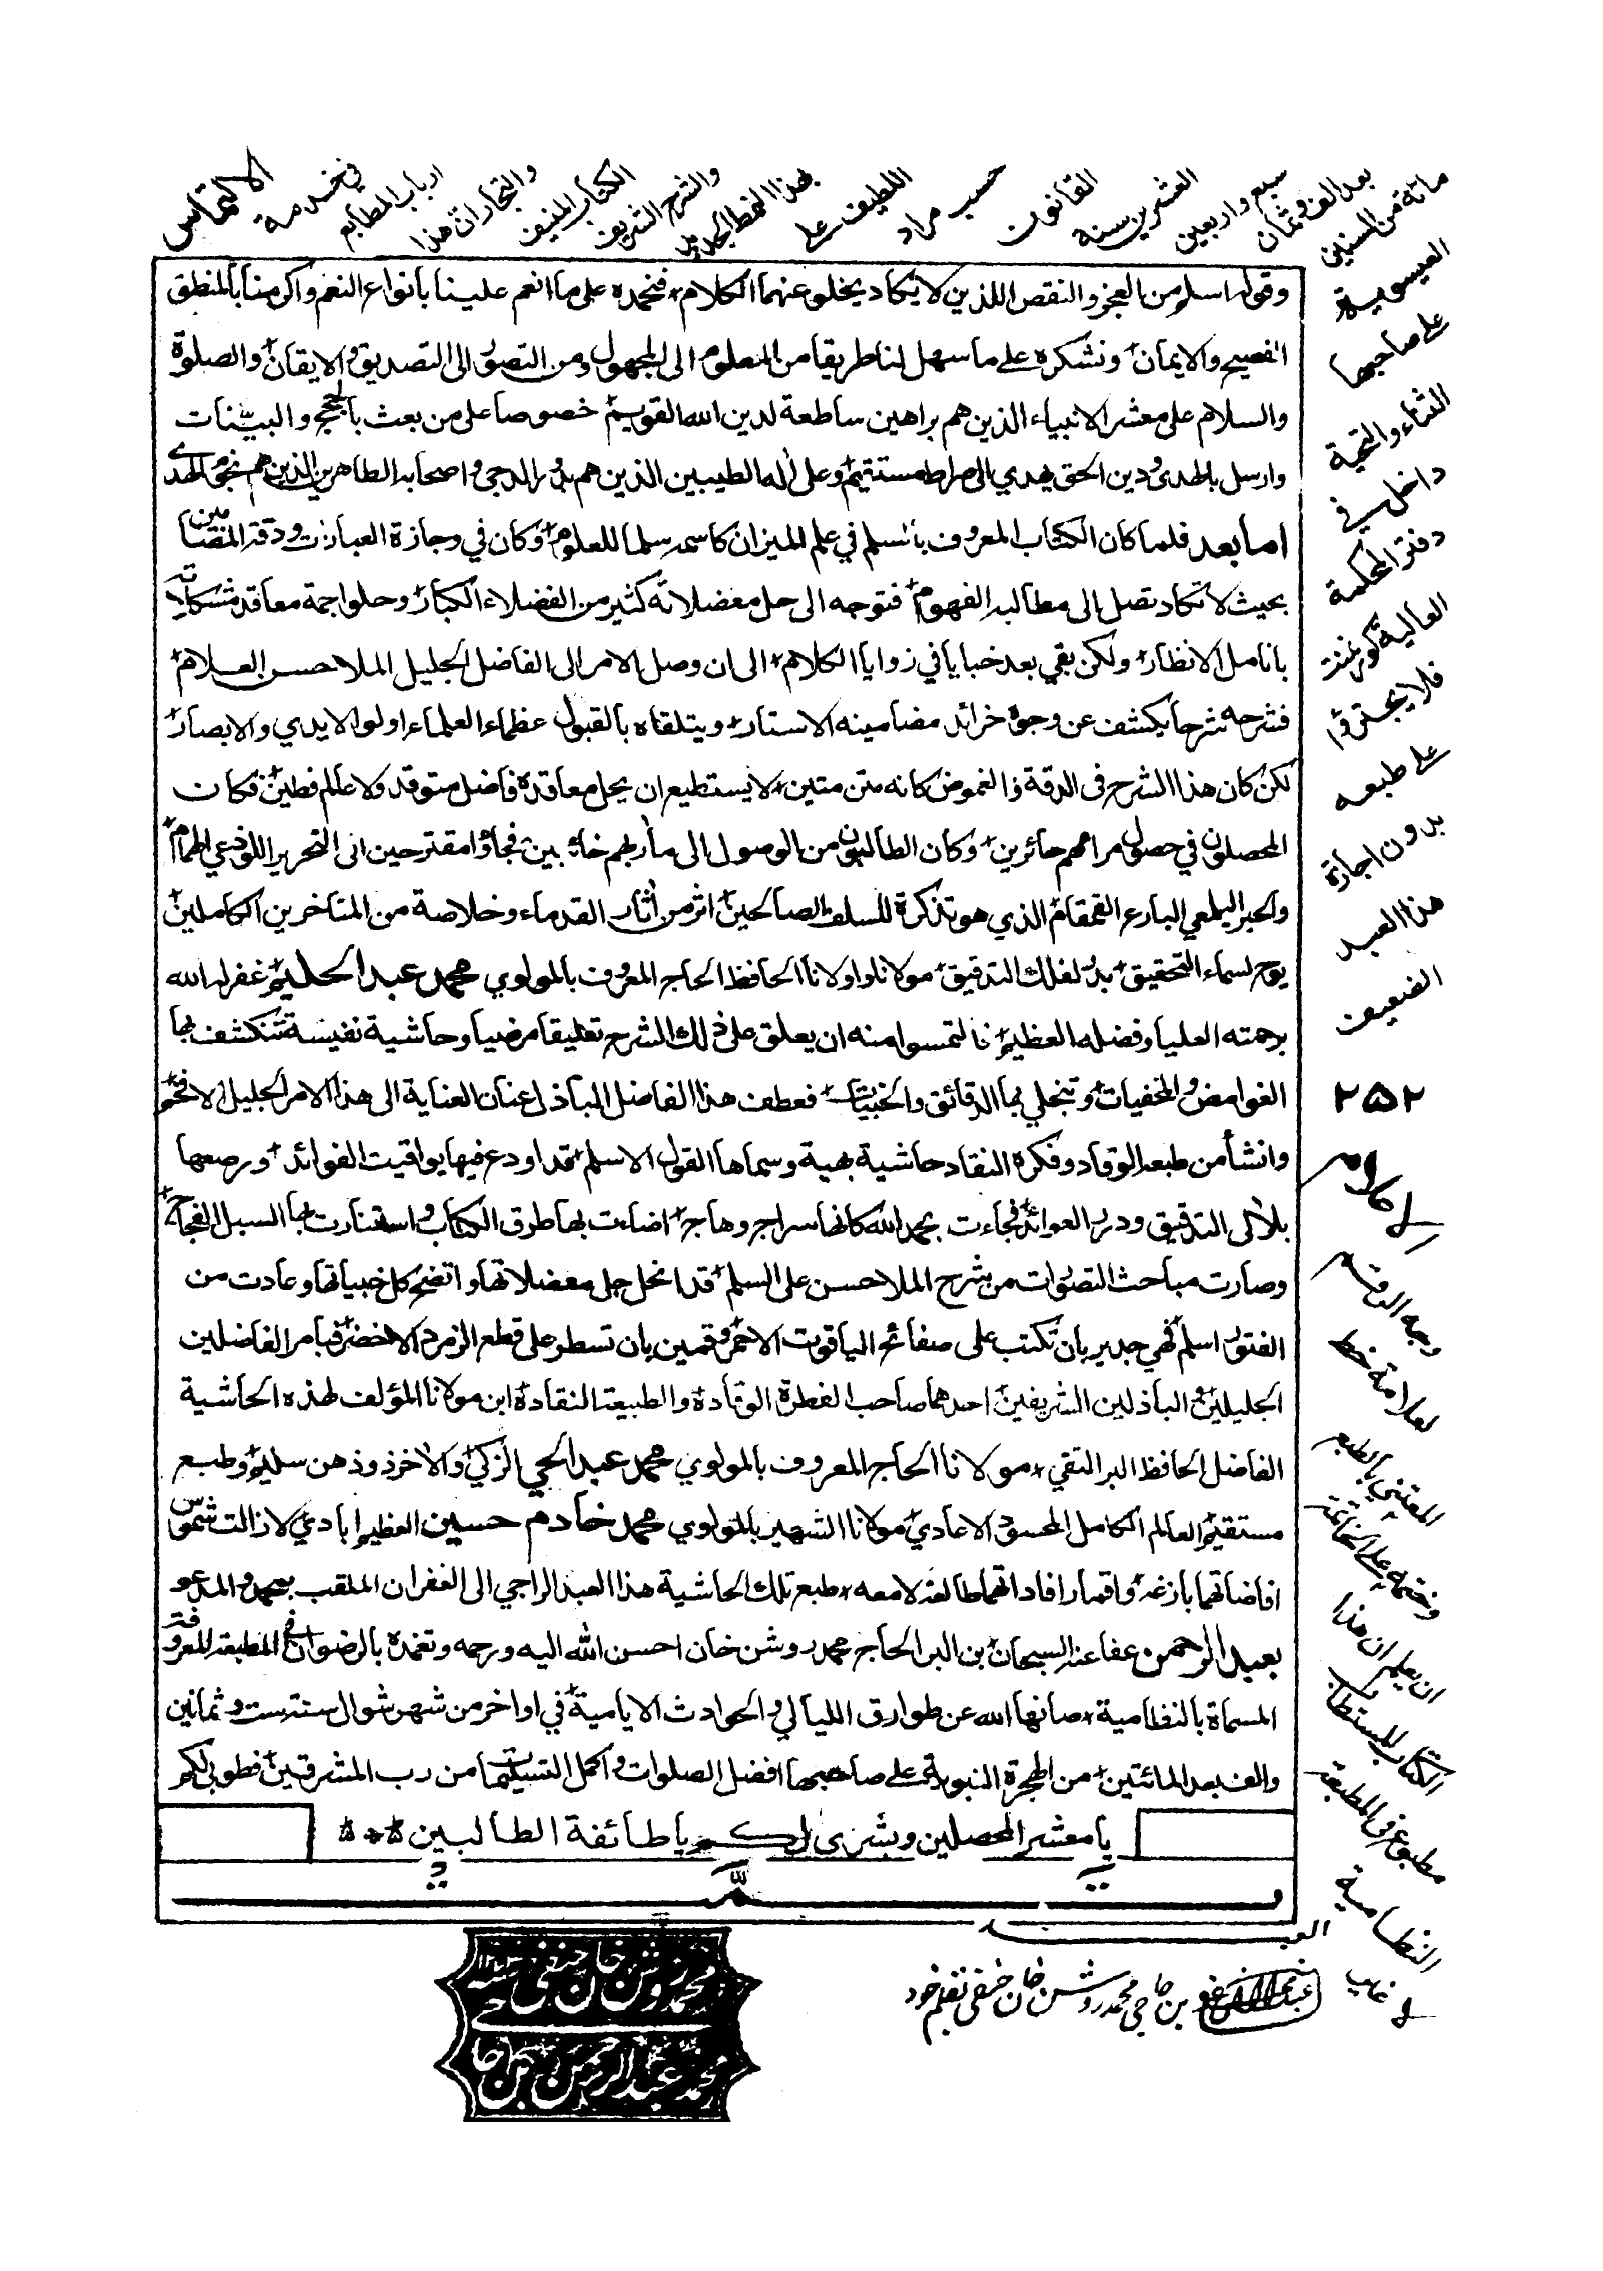 وقوله اسلم من العجز والنقص اللذين لا يكاد يخلو عنهما الكلام فنحمده على ما انعم علينا بانواع النعم واكرمنا بالمنطق
الفصيح والايمان ونشكره على ما سهل لنا طريقا من المعلوم الى المجهول ومن التصور الى التصديق والايقان والصلوة
والسلام على معشر الانبياء الذين هم براهين ساطعة لدين الله القويم خصوصا على من بعث بالحجج والبينات
وارسل بالهدى ودين الحق يهدي الى صراط مستقيم وعلى اله الطيبين الذين هم بدور الدجى واصحابه الطاهرين الذين هم نجوم الهدى
اما بعد فلما كان الكتاب المعروف بالسلم في علم الميزان كاسمه سلما للعلوم وكان في وجازة العبارات ودقة المضامين
بحيث لا تكاد تصل الى مطالبه الفهوم فتوجه الى حل معضلاته كثير من الفضلاء الكبار وحلوا جمة معاقد مشكلاته
بانامل الانظار ولكن بقي بعد خبايا في زوايا الكلام الى ان وصل الامر الى الفاضل الجليل الملا حسن العلام
فشرحه شرحا يكشف عن وجوه خرائد مضامينه الاستار ويتلقاه بالقبول عظماء العلماء اولوا الايدي والابصار
لكن كان هذا الشرح فى الدقة والغموض كانه متن متين لا يستطيع ان يحل معاقده فاضل متوقد ولا عالم فطين فكان
المحصلون في حصول مرامهم حائرين وكان الطالبون من الوصول الى مأربهم خائبين فجاؤا مقترحين الى النحرير اللوذعي الهمام
والحبر اليلمعي البارع القمقام الذي هو تذكرة للسلف الصالحين اثر من اثار القدماء وخلاصة من المتاخرين الكاملين
يوح لسماء التحقيق بدر لفلك التدقيق مولانا واولانا الحافظ الحاج المعروف بالمولوي محمد عبد الحليم غفر له الله
برحمته العليا وفضله العظيم فالتمسوا منه ان يعلق على ذلك الشرح تعليقا مرضيا وحاشية نفيسة تنكشف بها
الغوامض والمخفيات وتنجلي بها الدقائق والخبيات فعطف هذا الفاضل الباذل عنان العناية الى هذا الامر الجليل الافخم
وانشأ من طبعه الوقاد وفكره النقاد حاشية بهية وسماها القول الاسلم قد اودع فيها يواقيت الفوائد ورصعها
بلآلى التدقيق ودرر العوائد فجاءت بحمد الله كانها سراج وهاج اضاءت بها طرق الكتاب واستنارت بها السبل الفجاج
وصارت مباحث التصورات من شرح الملا حسن على السلم قد انحل جل معضلاتها واتضح كل خبياتها وعادت من
الفتور اسلم فهي جدير بان تكتب على صفائح الياقوت الاحمر وقمين بان تسطر على قطع الزمرد الاخضر فبامر الفاضلين
الجليلين الباذلين الشريفين احدهما صاحب الفطرة الوقادة والطبيعة النقادة ابن مولانا المؤلف لهذه الحاشية
الفاضل الحافظ البر التقي مولانا الحاج المعروف بالمولوي محمد عبد الحي الزكي والاخر ذو ذهن سليم وطبع
مستقيم العالم الكامل المحسود الاعادي مولانا الشهير بالمولوي محمد خادم حسين العظيم ابادي لا زالت شموس
افاضاتهما بازغة واقمار افاداتهما طالعة لامعه طبع تلك الحاشية هذا العبد الراجي الى الغفران الملقب بمحمد والمدعو
بعبد الرحمن عفا عنه السبحان بن البر الحاج محمد روشن خان احسن الله اليه ورحمه وتغمده بالرضوان في المطبعة المعروفة
المسماة بالنظامية صانها الله عن طوارق الليالي والحوادث الايامية في اواخر من شهر شوال سنة ست وثمانين
والف بعد المائتين من الهجرة النبوية على صاحبها افضل الصلوات واكمل التسليمات من رب المشرقين فطوبى لكم
يا معشر المحصلين وبشرى لكم يا طائفة الطالبين
تمت
العبد
عبد الرحمن عفي بن حاجي محمد روشن خان حنفي بقلم خود
محمد عبد الرحمن بن حاجي محمد روشن خان حنفي
٢٥٢
اعلام
وجه الرقم
لعلامة خط
المعتني بالطبع
وختمه على الخاتمة
ان يعلم ان هذا
الكتاب المستطاب
مطبوع في المطبعة
النظامية
الالتماس
في خدمة
ارباب المطابع
والتجار ان هذا
الكتاب المنيف
والشرح الشريف
بهذا النمط الجديد
اللطيف على
حسب مراد
القانون
العشرين سنة
سبع واربعين
بعد الف وثمان
مائة من السنين
العيسوية
على صاحبها
الثناء والتحية
داخل في
دفتر المحكمة
العالية گورنمنٹ
فلا يجترؤا
على طبعه
بدون اجازة
هذا العبد
الضعيف